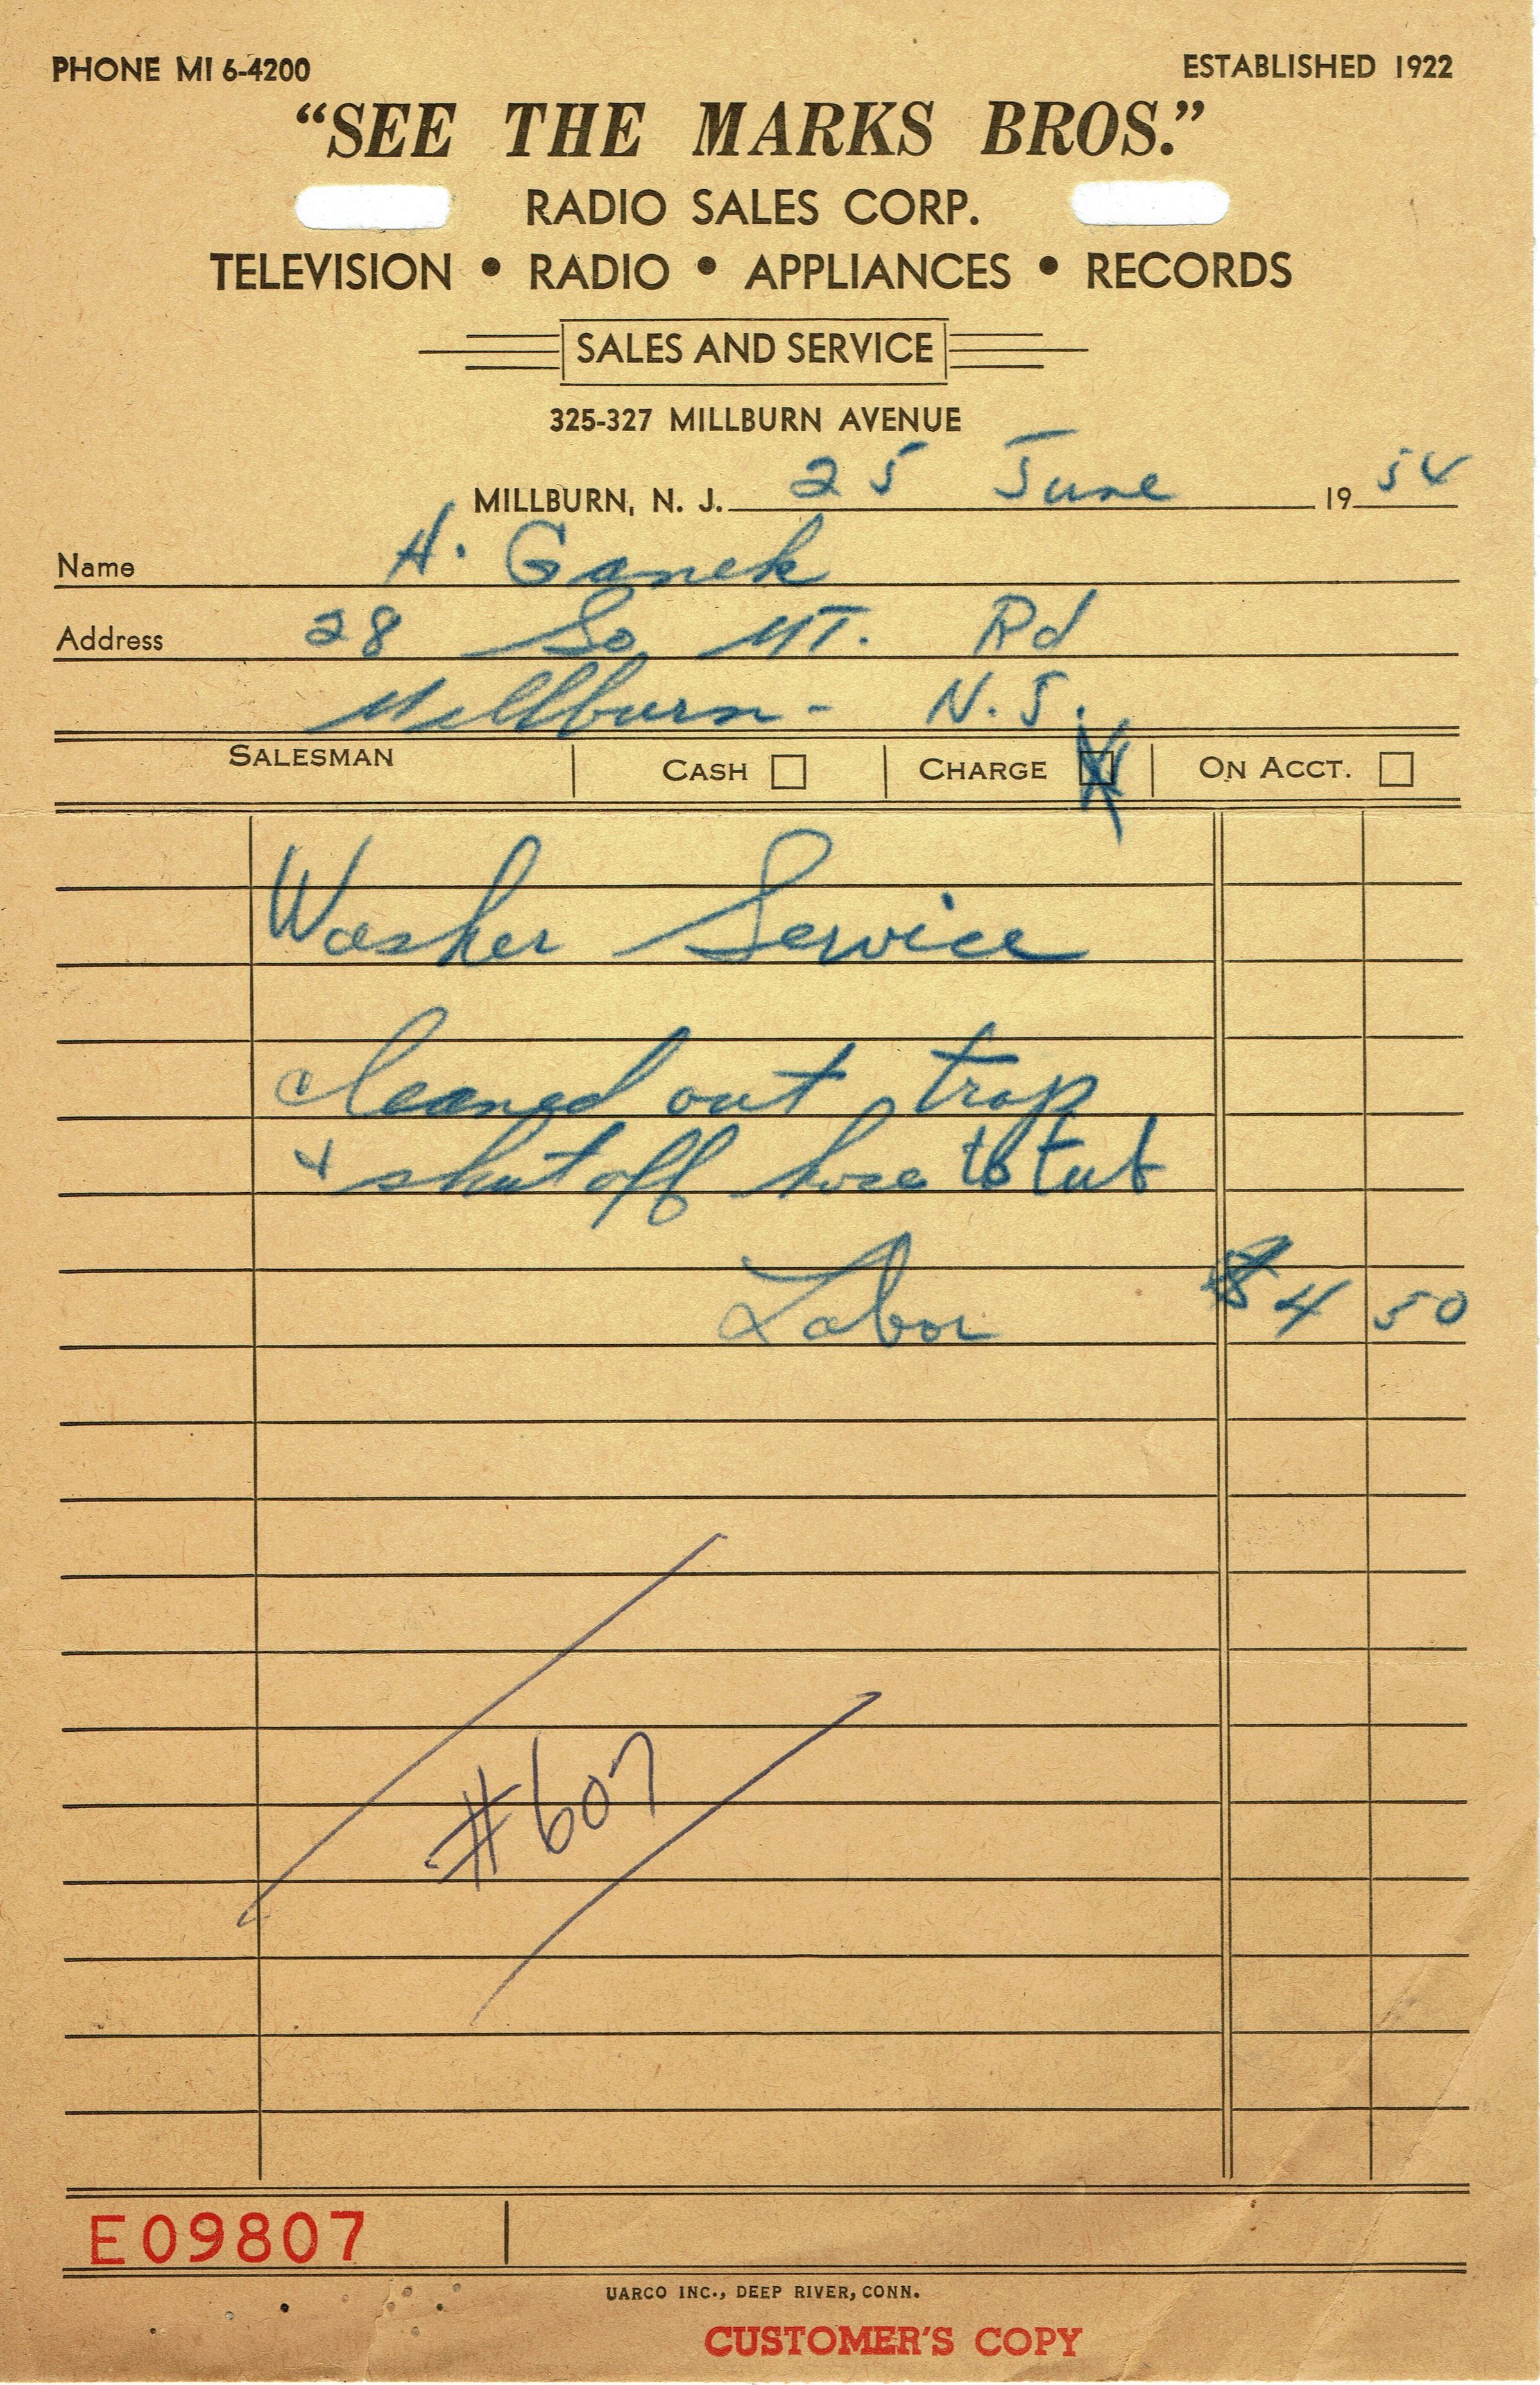 PHONE MI 6-4200 ESTABLISHED 1922
"SEE THE MARKS BROS."
RADIO SALES CORP.
TELEVISION • RADIO • APPLIANCES • RECORDS
SALES AND SERVICE
325-327 MILLBURN AVENUE
MILLBURN, N. J. 25 June 1954
Name H. Ganek
Address 28 So MT. Rd
Millburn - N.J.
SALESMAN CASH CHARGE ON ACCT.
Washer Service
cleaned out trap
+ shut off hose to tub
Labor $4 50
#607
E09807
UARCO INC., DEEP RIVER, CONN.
CUSTOMER'S COPY